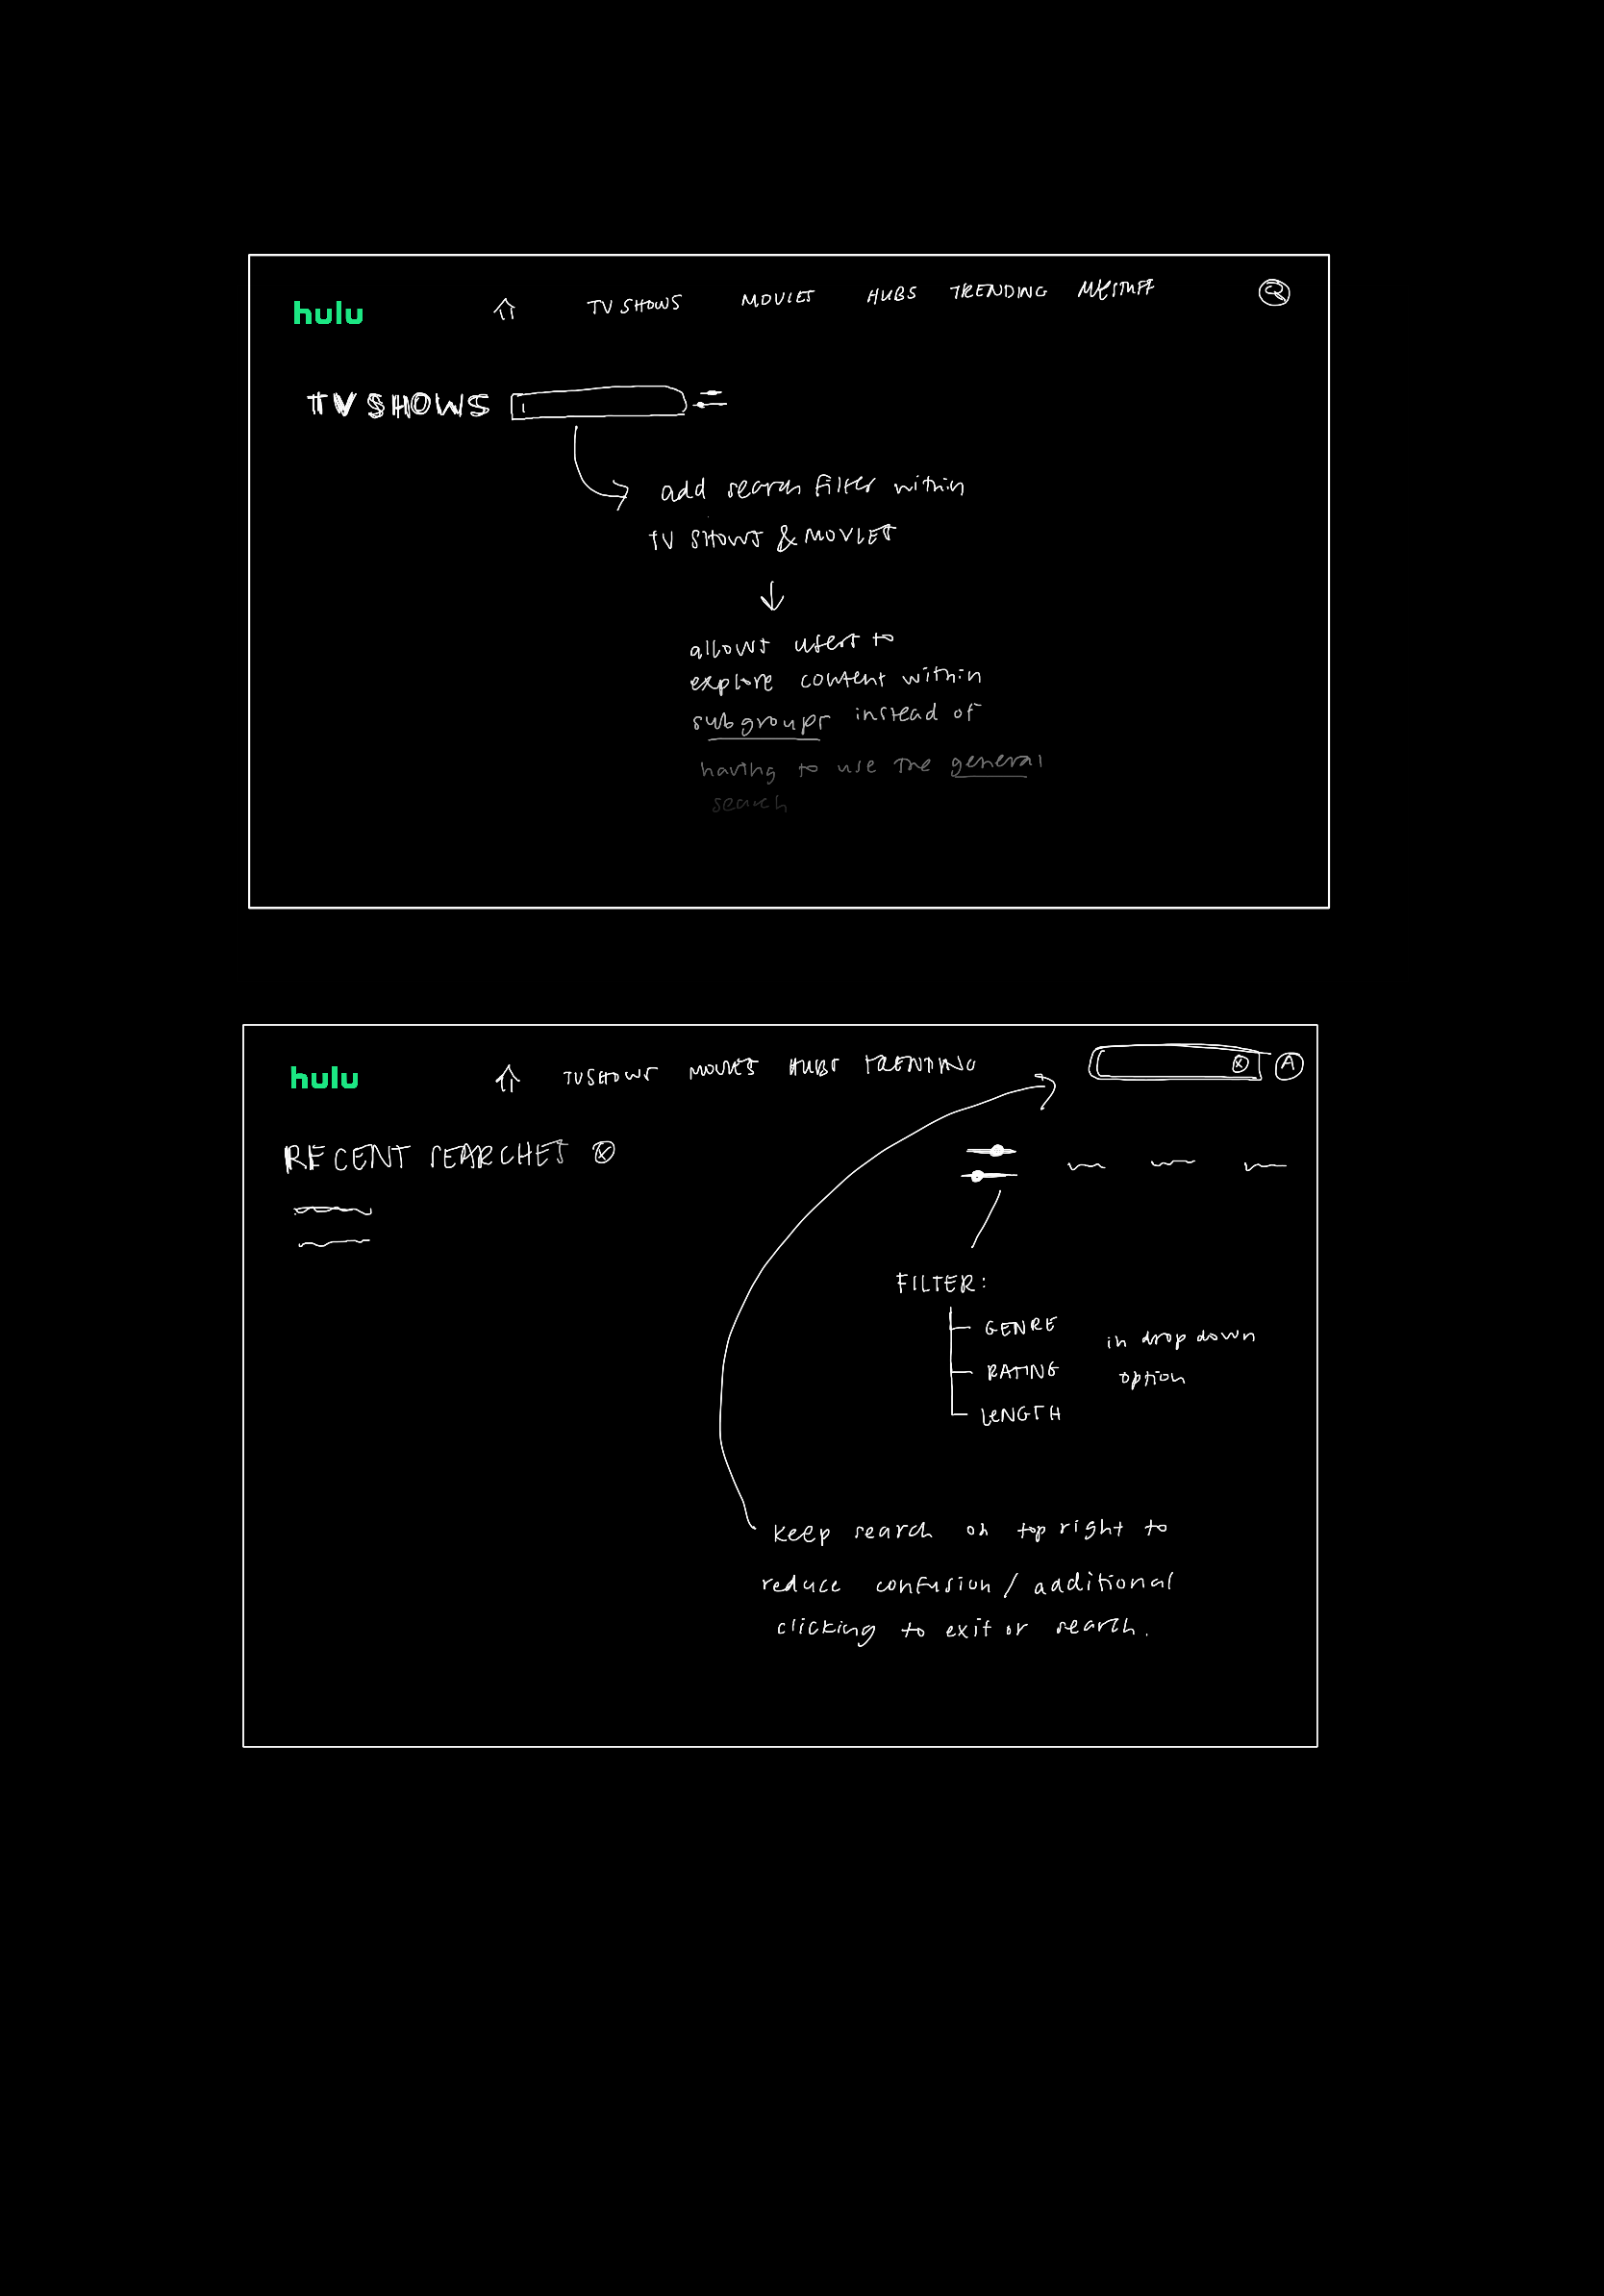 hulu
TV SHOWS MOVIES HUBS TRENDING MY STUFF
TV SHOWS
add search filter within
TV SHOWS & MOVIES
allows users to
explore content within
subgroups instead of
having to use the general
search
hulu
TV SHOWS MOVIES HUBS TRENDING
A
RECENT SEARCHES
FILTER:
GENRE
in drop down
RATING
option
LENGTH
keep search on top right to
reduce confusion / additional
clicking to exit or search.